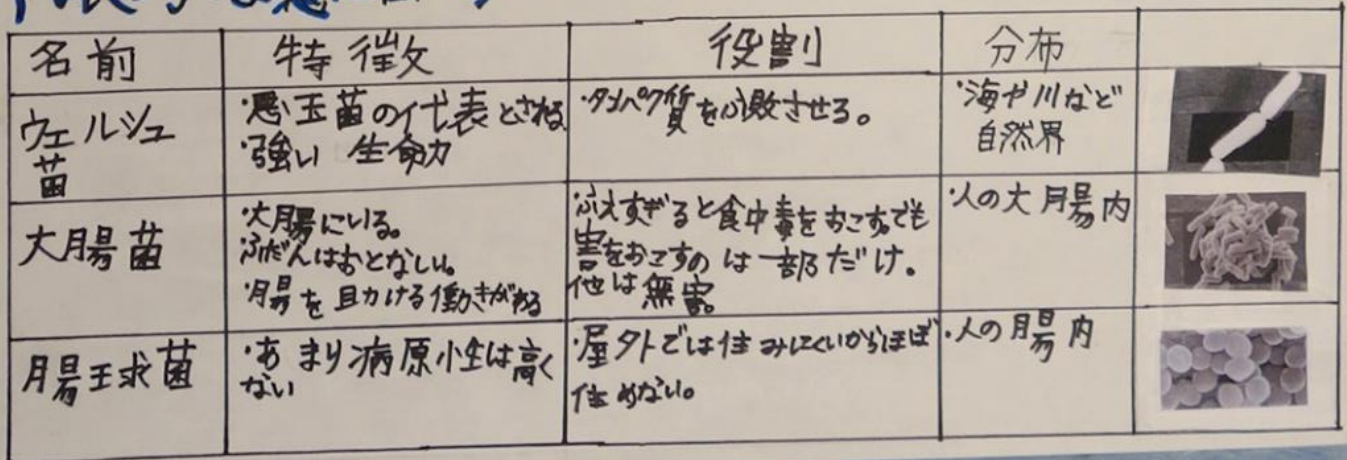 名前 特徴 役割 分布
ウェルシュ
菌
・悪玉菌の代表とされる
・強い 生命力
・タンパク質をふ敗させる。
・海や川など
自然界
大腸菌
・大腸にいる。
ふだんはおとなしい。
・腸を助ける働きがある
・ふえすぎると食中毒をおこす。でも
害をおこすのは一部だけ。
他は無害。
・人の大腸内
腸球菌
・あまり病原性は高く
ない
・屋外では住みにくいからほぼ
住めない。
・人の腸内